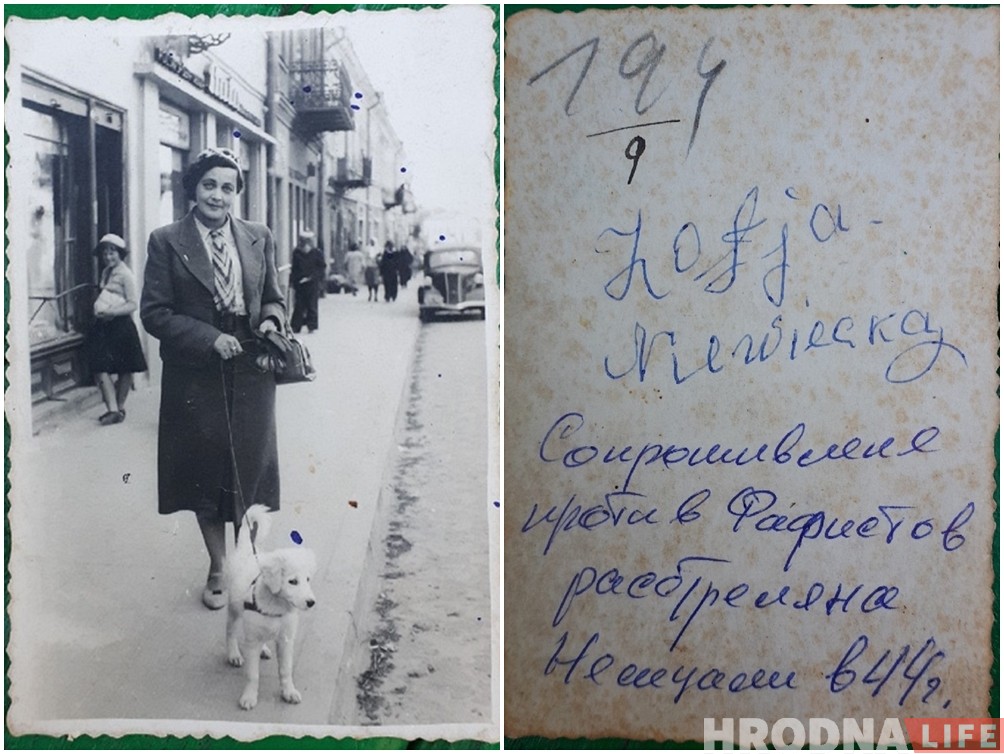 194
9
Zofja-
Сопротивленя
против Фашистов
расстреляна
Немцами в 44 г.
HRODNA LIFE